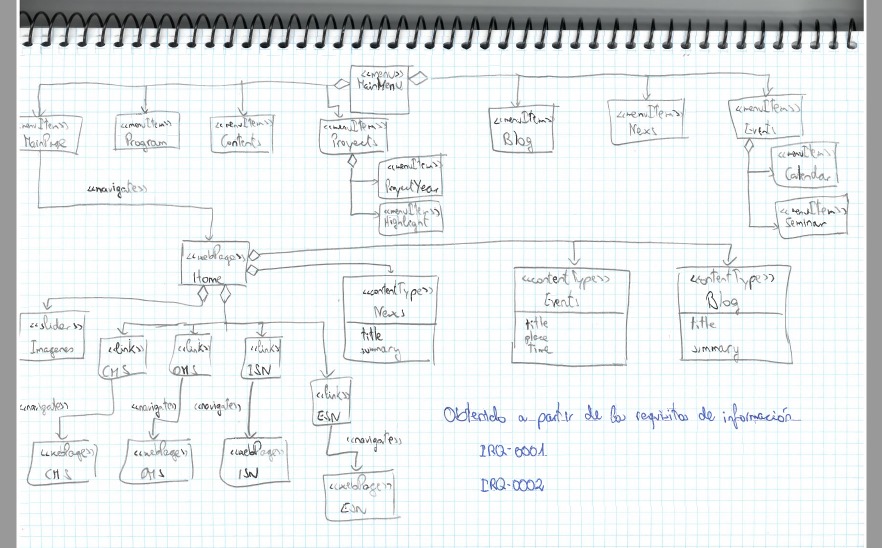 <<menu>>
MainMenu
<<menuItem>>
MainPage
<<menuItem>>
Program
<<menuItem>>
Contents
<<menuItem>>
Proyects
<<menuItem>>
Blog
<<menuItem>>
News
<<menuItem>>
Events
<<menuItem>>
ProyectYear
<<menuItem>>
Highlight
<<menuItem>>
Calendar
<<menuItem>>
Seminar
<<navigates>>
<<webPage>>
Home
<<contentType>>
News
title
summary
<<contentType>>
Events
title
place
time
<<contentType>>
Blog
title
summary
<<slider>>
Imagenes
<<link>>
CMS
<<link>>
OMS
<<link>>
ISN
<<link>>
ESN
<<navigates>>
<<navigates>>
<<navigates>>
<<navigates>>
<<webPage>>
CMS
<<webPage>>
OMS
<<webPage>>
ISN
<<webPage>>
ESN
Obtenido a partir de los requisitos de información
IRQ-0001
IRQ-0002